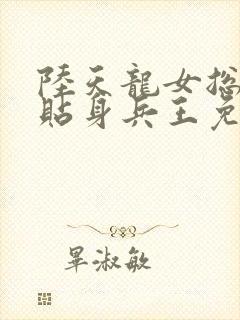 陸天龍女總
貼身兵王免
畢淑敏